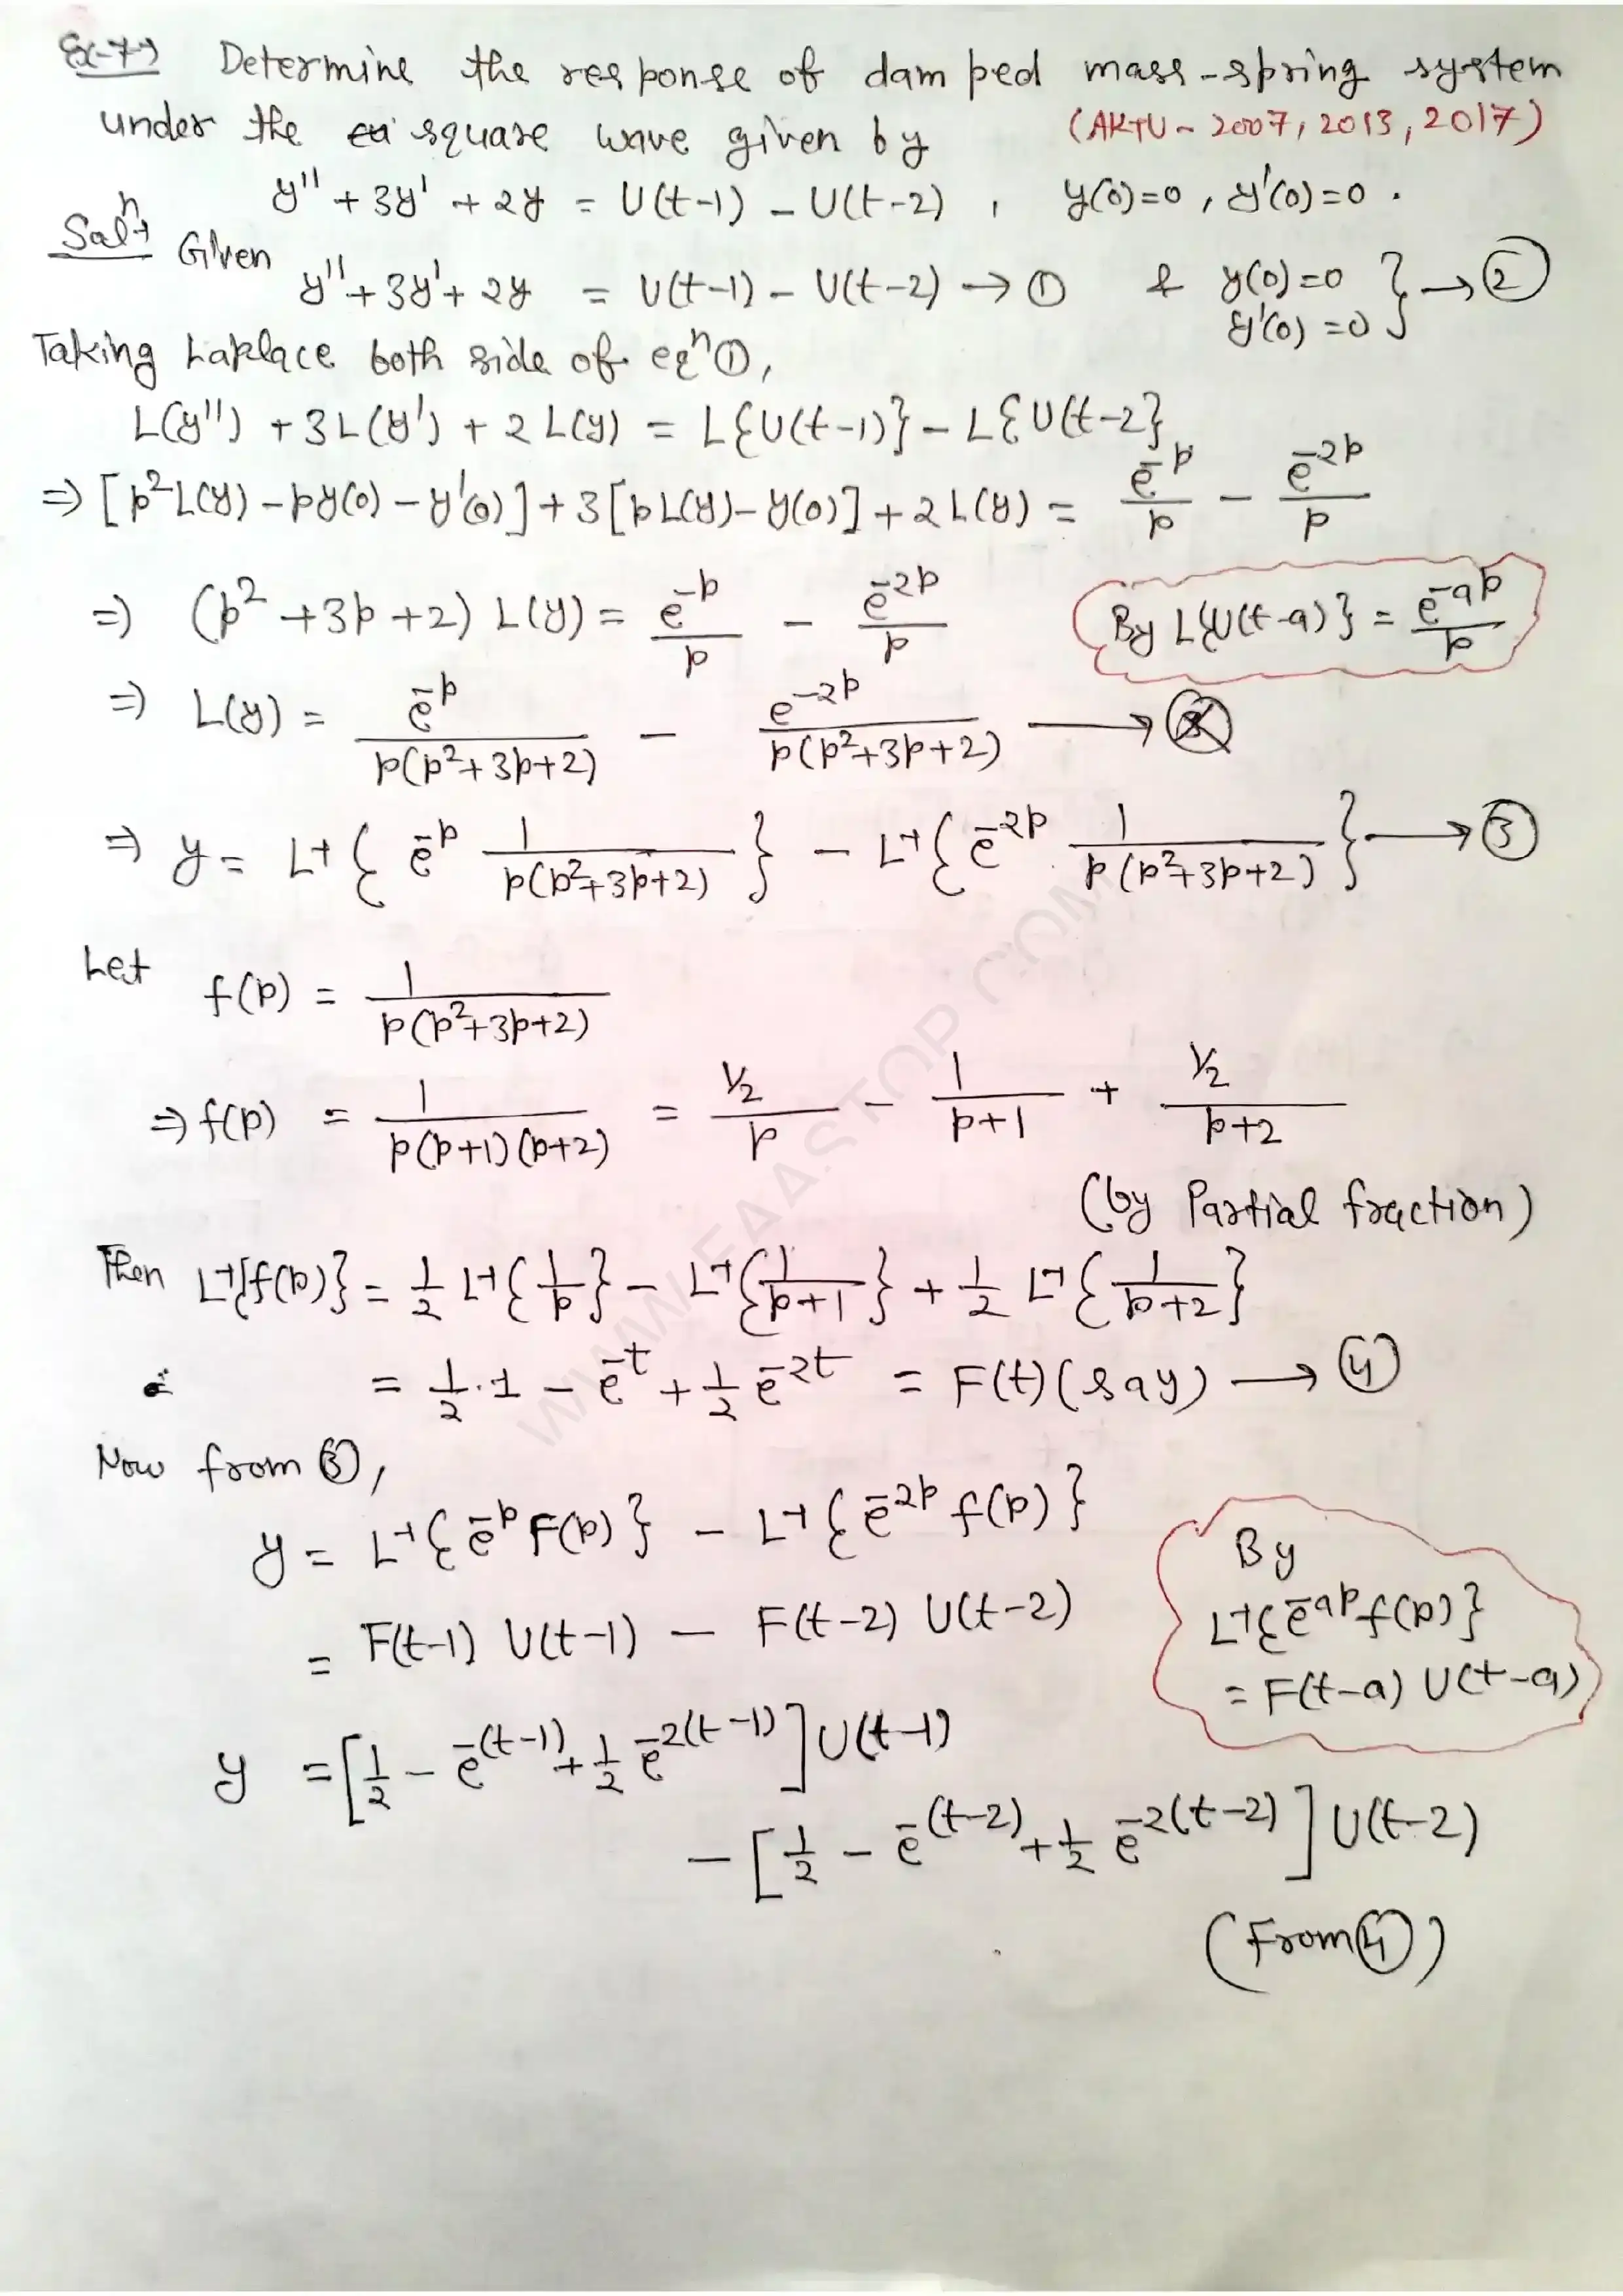 Ex-7→ Determine the response of damped mass-spring system
under the square wave given by (AKTU - 2007, 2013, 2017)
y'' + 3y' + 2y = U(t-1) - U(t-2) , y(0)=0 , y'(0)=0 .
Solⁿ→ Given
y''+3y'+2y = U(t-1) - U(t-2) → ① & y(0)=0 } → ②
y'(0)=0
Taking Laplace both side of eqⁿ①,
L(y'') + 3L(y') + 2L(y) = L{U(t-1)} - L{U(t-2}
⇒ [p²L(y) - py(0) - y'(0)] + 3[pL(y)-y(0)] + 2L(y) = e^-p/p - e^-2p/p
⇒ (p²+3p+2) L(y) = e^-p/p - e^-2p/p
By L{U(t-a)} = e^-ap/p
⇒ L(y) = e^-p/p(p²+3p+2) - e^-2p/p(p²+3p+2) →
⇒ y = L⁻¹{ e^-p 1/p(p²+3p+2) } - L⁻¹{ e^-2p . 1/p(p²+3p+2) } → ③
Let f(p) = 1/p(p²+3p+2)
⇒ f(p) = 1/p(p+1)(p+2) = ½/p - 1/p+1 + ½/p+2
(by Partial fraction)
Then L⁻¹{f(p)} = 1/2 L⁻¹{1/p} - L⁻¹{1/p+1} + 1/2 L⁻¹{1/p+2}
= 1/2.1 - e^-t + 1/2 e^-2t = F(t) (say) → ④
Now from ③,
y = L⁻¹{e^-p F(p)} - L⁻¹{e^-2p f(p)}
= F(t-1) U(t-1) - F(t-2) U(t-2)
By
L⁻¹{e^-ap f(p)}
= F(t-a) U(t-a)
y = [1/2 - e^-(t-1) + 1/2 e^-2(t-1)] U(t-1)
- [1/2 - e^-(t-2) + 1/2 e^-2(t-2)] U(t-2)
(From ④)
WWW.FAASTOP.COM